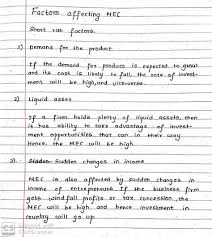 Factors affecting MEC
Short run factors.
1) Demand for the product
If the demand for product is expected to grow
and its cost is likely to fall, the rate of invest-
ment will be high, and vice-versa.
2) Liquid asset
If a firm holds plenty of liquid assets, then
it has ability to take advantage of invest-
ment opportunities that can in their way.
Hence, the MEC will be high
3) Sudden changes in income
MEC is also affected by sudden changes in
income of entrepreneurs If the business firm
gets windfall profits or tax concession, the
MEC will be high and hence investment in
country will go up
CS CamScanner